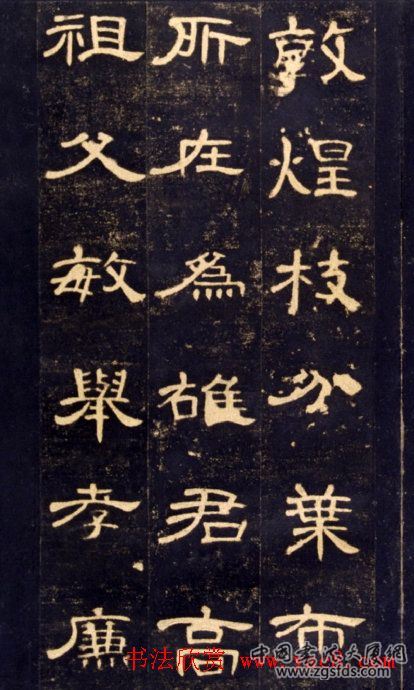 敦煌枝分葉布
所在為雄君高
祖父敏舉孝廉
书法欣赏 www.yac8.com
中国书法大展网
www.zgsfds.com